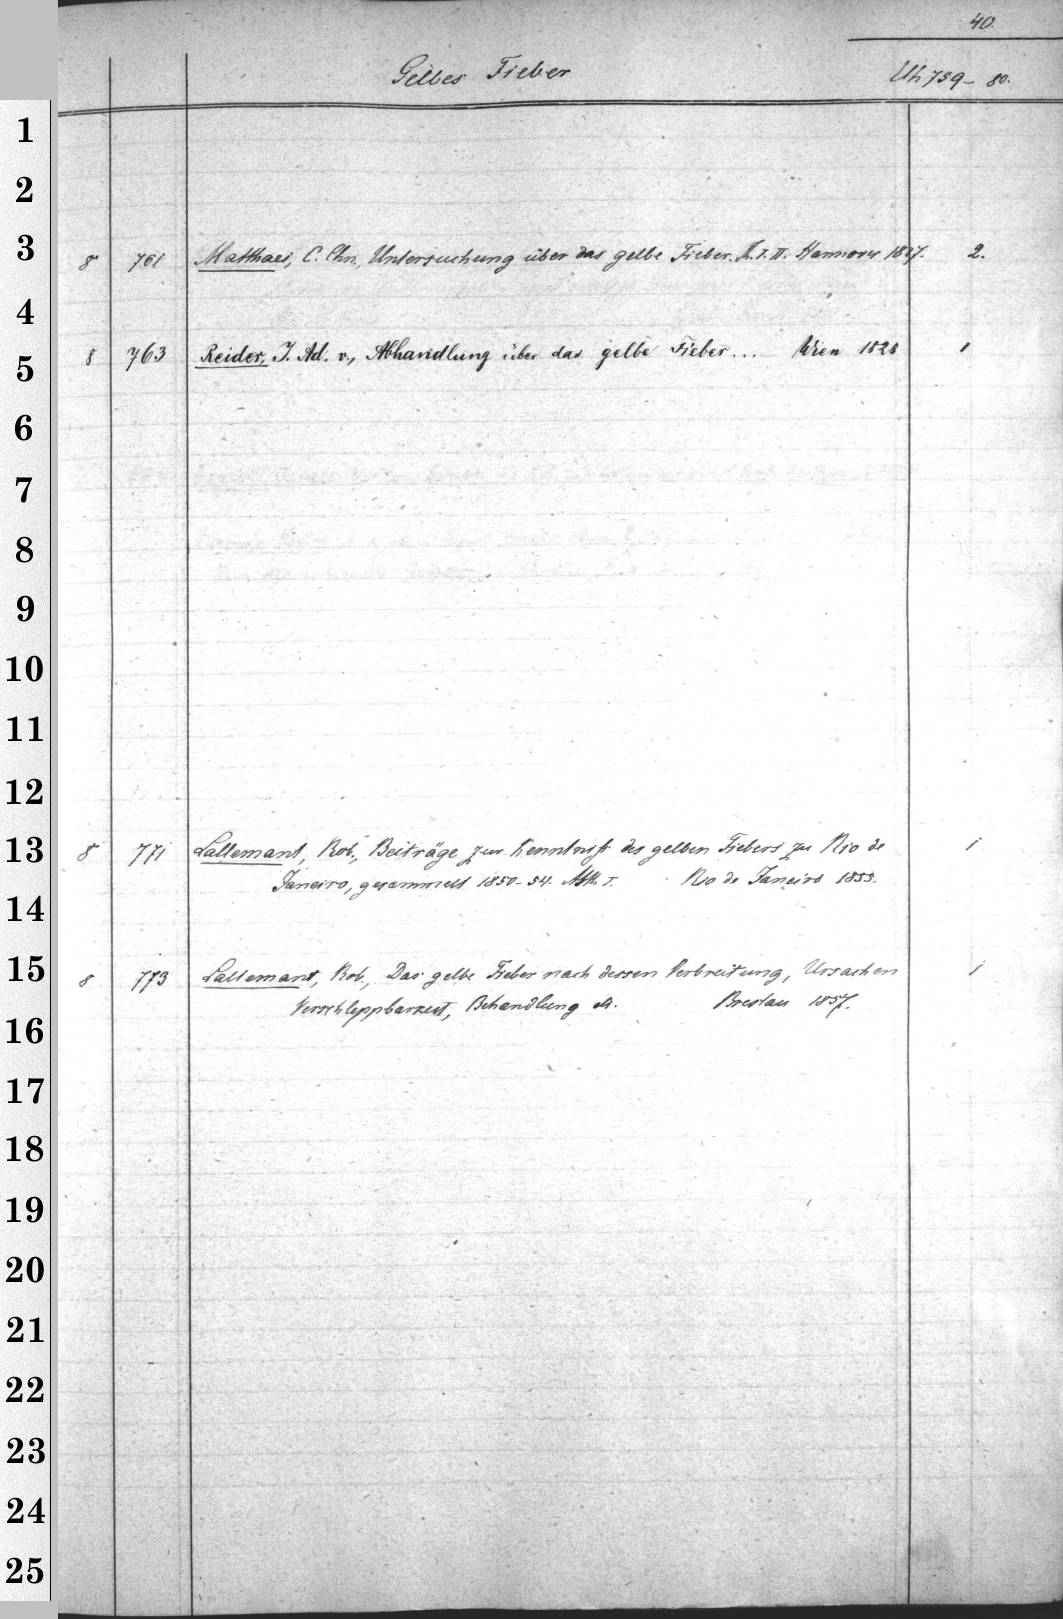 40.
Gelbes Fieber Uh 759-80.
1
2
3 8 761 Matthaei, C. Chn., Untersuchung über das gelbe Fieber. Th. I. II. Hannover 1827. 2.
4
5 8 763 Reider, J. Ad. v., Abhandlung über das gelbe Fieber... Wien 1828 1
6
7
8
9
10
11
12
13 8 771 Lallemant, Rob., Beiträge zur Kenntniss des gelben Fiebers zu Rio de 1
Janeiro, gesammelt 1850-54. Abth. I. Rio de Janeiro 1855.
14
15 8 773 Lallemant, Rob., Das gelbe Fieber nach dessen Verbreitung, Ursachen 1
Verschleppbarkeit, Behandlung etc. Breslau 1857.
16
17
18
19
20
21
22
23
24
25